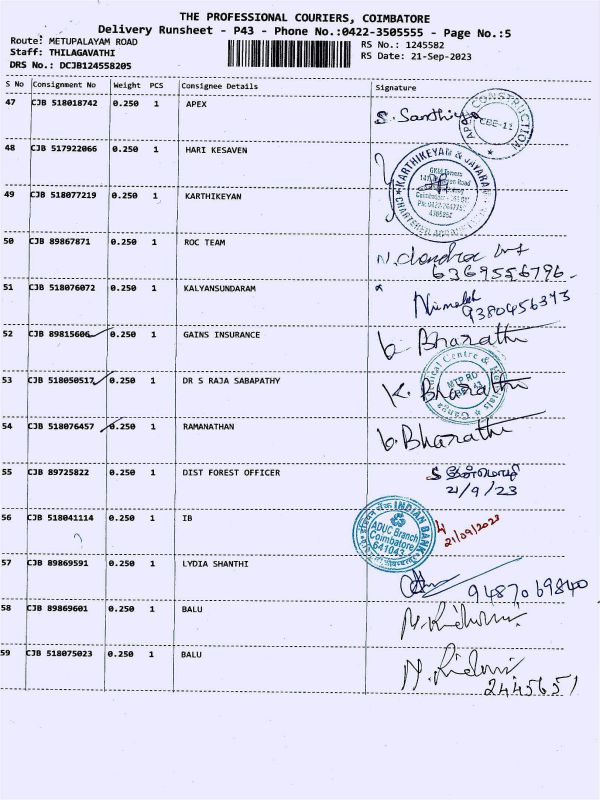 THE PROFESSIONAL COURIERS, COIMBATORE
Delivery Runsheet - P43 - Phone No.:0422-3505555 - Page No.:5
Route: METUPALAYAM ROAD
RS No.: 1245582
Staff: THILAGAVATHI
RS Date: 21-Sep-2023
DRS No.: DCJB124558205
S No Consignment No Weight PCS Consignee Details Signature
47 CJB 518018742 0.250 1 APEX S. Santhiya
APEX CONSTRUCTION
CBE-11
48 CJB 517922066 0.250 1 HARI KESAVEN
KARTHIKEYAN & JAYARAM
CHARTERED ACCOUNTANTS
49 CJB 518077219 0.250 1 KARTHIKEYAN
50 CJB 89867871 0.250 1 ROC TEAM
6369556796
51 CJB 518076072 0.250 1 KALYANSUNDARAM
9380456343
52 CJB 89815606 0.250 1 GAINS INSURANCE Bharathi
53 CJB 518050517 0.250 1 DR S RAJA SABAPATHY K. Bharathi
MTP RD
54 CJB 518076457 0.250 1 RAMANATHAN Bharathi
55 CJB 89725822 0.250 1 DIST FOREST OFFICER
21/9/23
56 CJB 518041114 0.250 1 IB
INDIAN BANK
ADUC Branch
Coimbatore
641043
21/09/2023
57 CJB 89869591 0.250 1 LYDIA SHANTHI
9487069840
58 CJB 89869601 0.250 1 BALU
59 CJB 518075023 0.250 1 BALU
2445651